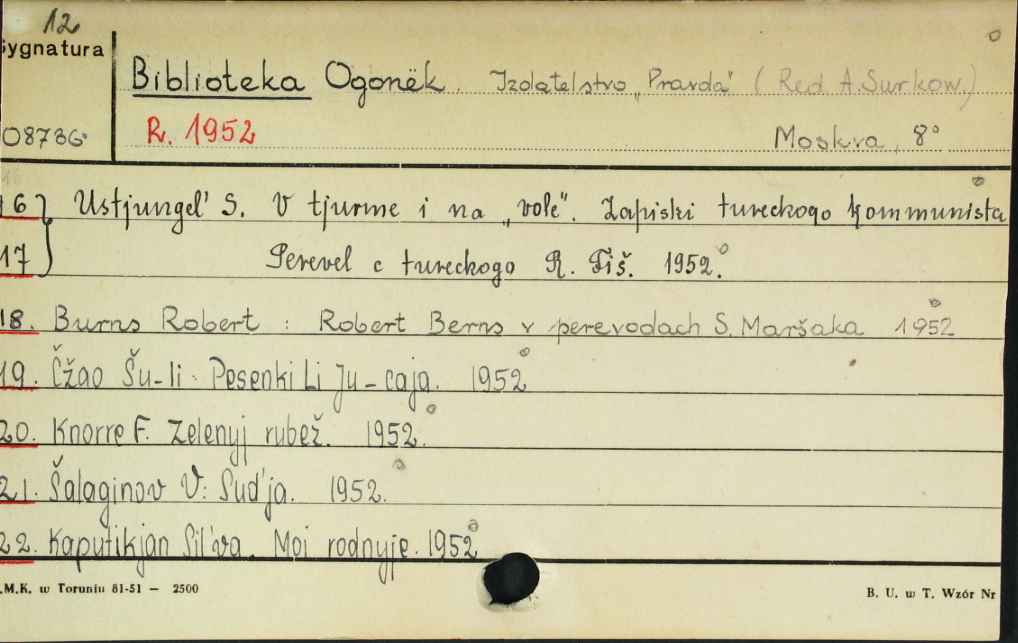 12
Sygnatura
Biblioteka Ogonëk. Izdatelstvo „Pravda" (Red. A. Surkow.)
08736
R. 1952
Moskva, 8°
16
17
Ustjungel' S. V tjurme i na „vole". Zapiski tureckogo kommunista
Perevel c tureckogo R. Fiš. 1952.
18. Burns Robert : Robert Berns v perevodach S. Maršaka 1952
19. Čžao Šu-li : Pesenki Li Ju-caja. 1952
20. Knorre F. Zelenyj rubež. 1952.
21. Šalaginov V: Sud'ja. 1952.
22. Kaputikjan Sil'va. Moi rodnyje. 1952
.M.K. w Toruniu 81-51 — 2500
B. U. w T. Wzór Nr